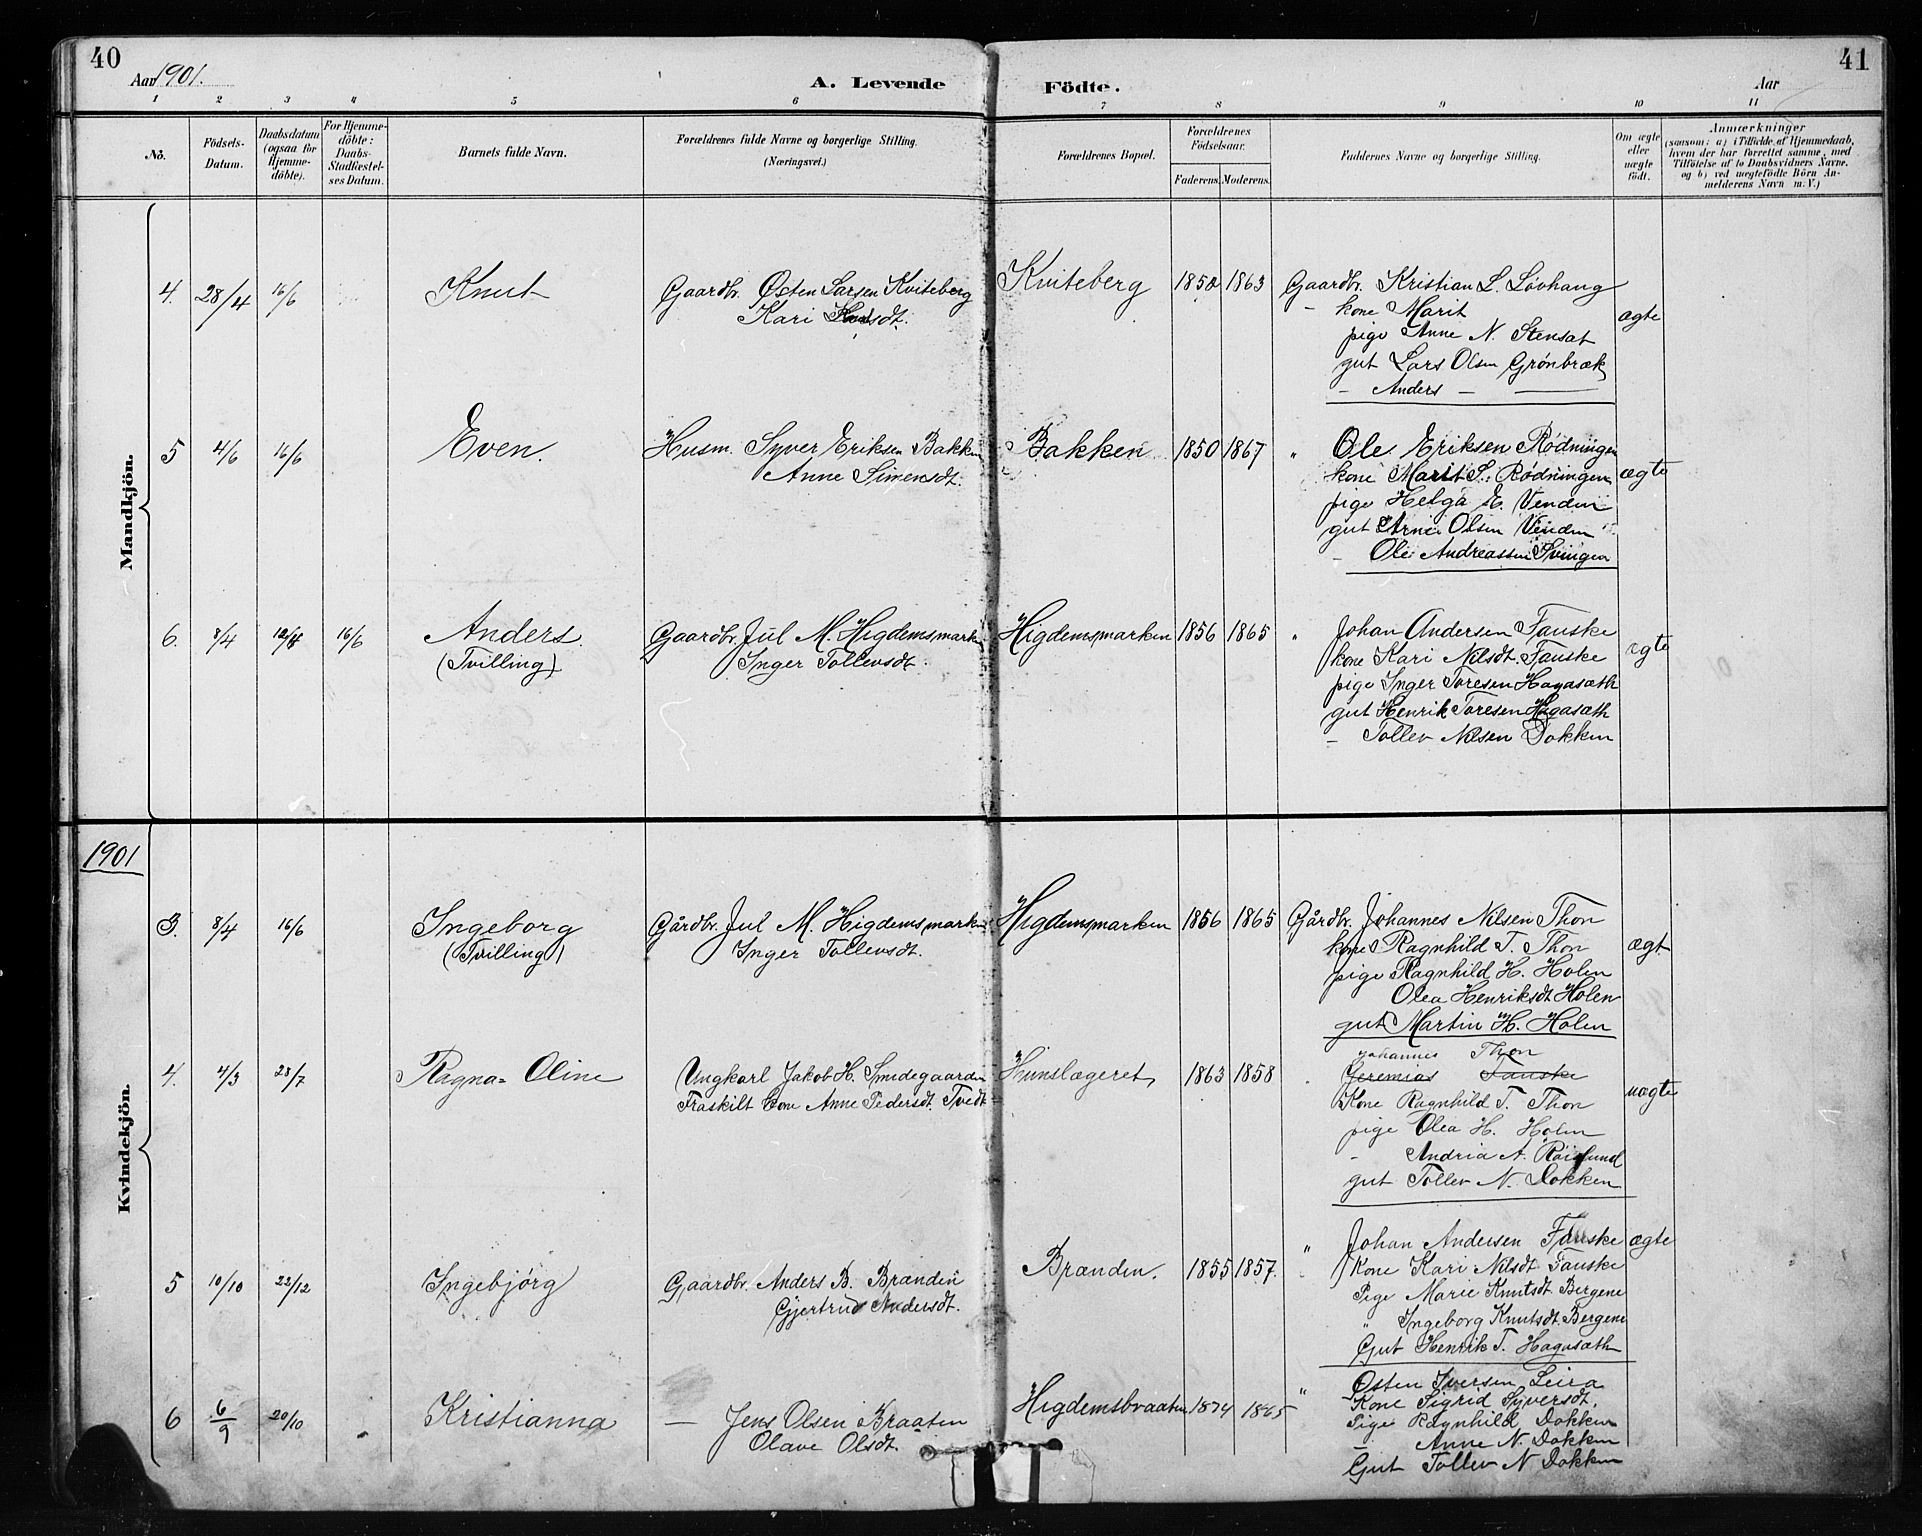 40
Aar 1901.
A. Levende Födte.
Aar
41
1 2 3 4 5 6 7 8 9 10 11
No.
Födsels-Datum.
Daabsdatum (ogsaa for Hjemme-döbte).
For Hjemme-döbte: Daabs-Stadfæstel-ses Datum.
Barnets fulde Navn.
Forældrenes fulde Navne og borgerlige Stilling. (Næringsvei.)
Forældrenes Bopæl.
Forældrenes Födselsaar.
Faderens. Moderens.
Faddernes Navne og borgerlige Stilling.
Om ægte eller uægte födt.
Anmærkninger
(saasom: a) i Tilfælde af Hjemmedaab,
hvem der har forrettet samme, med
Tilföielse af to Daabsvidners Navne.
og b) ved uægtefödte Börn An-
melderens Navn m: V.)
Mandkjön.
4. 28/4 16/6 Knut Gaardbr. Østen Larsen Kviteberg Kviteberg 1850 1863 Gaardbr. Kristian L. Løvhaug ægte
Kari
- kone Marit
pige Anne N. Stensat
gut Lars Olsen Grønbræk
- Anders -
5 4/6 16/6 Even. Husm. Syver Eriksen Bakken Bakken 1850 1867 " Ole Eriksen Rødningen ægte
Anne Simensdt.
kone Marit S. Rødningen
pige Helga E. Venden
gut Arne Olsen Venden
- Ole Andreassen Svingen
6. 8/4 12/4 16/6 Anders. Gaardbr. Jul M. Higdemsmarken Higdemsmarken 1856 1865 " Johan Andersen Fauske ægte
(Tvilling) Inger Tollevsdt.
kone Kari Nilsdt. Fauske
pige Inger Toresen Hagasæth
gut Henrik Toresen Hagasæth
- Tollev Nilsen Dokken
1901
Kvindekjön.
3. 8/4 16/6 Ingeborg Gårdbr. Jul M. Higdemsmarken Higdemsmarken 1856 1865 Gårdbr. Johannes Nilsen Thon ægt
(Tvilling) Inger Tollevsdt.
kone Ragnhild T. Thon
pige Ragnhild H. Holen
Olea Henriksdt Holen
gut Martin H. Holen
4. 4/3 28/7 Ragna Oline Ungkarl Jakob H. Smedegaarden Hunslægeret 1863 1858 Johannes Thon
Jeremias Fauske uægte
Fraskilt kone Anne Pedersdt. Tvedt
Kone Ragnhild T. Thon
pige Olea H. Holen
- Andria A. Røislund
gut Tollev N. Dokken
5 10/10 22/12 Ingebjørg Gaardbr. Anders B. Brænden Brænden. 1855 1857. " Johan Andersen Fauske ægte
Gjertrud Andersdt.
Kone Kari Nilsdt Fauske
Pige Marie Knutsdt. Bergene
" Ingeborg Knutsdt. Bergene
Gut Henrik T. Hagasæth
6 6/9 20/10 Kristianna - Jens Olsen Braaten Higdemsbraaten 1874 1865 " Østen Iversen Leira
Olave Olsdt.
Kone Sigrid Syversdt.
Pige Ragnhild Dokken
- Anne N. Dokken
Gut Tollev N Dokken